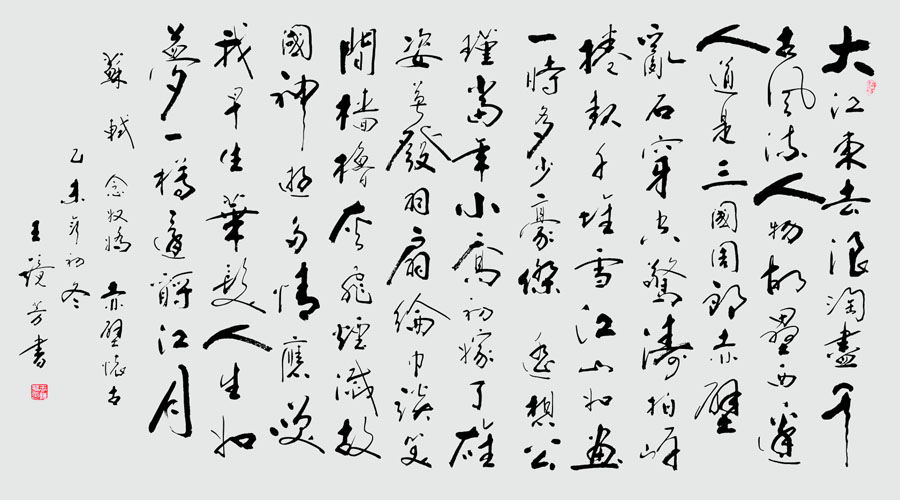 大江東去浪淘盡千
古風流人物故壘西邊
人道是三國周郎赤壁
亂石穿空驚濤拍岸
捲起千堆雪江山如畫
一時多少豪傑遙想公
瑾當年小喬初嫁了雄
姿英發羽扇綸巾談笑
間檣櫓灰飛煙滅故
國神遊多情應笑
我早生華髮人生如
夢一樽還酹江月
蘇軾 念奴嬌 赤壁懷古
乙未年初冬
王鏡芳書